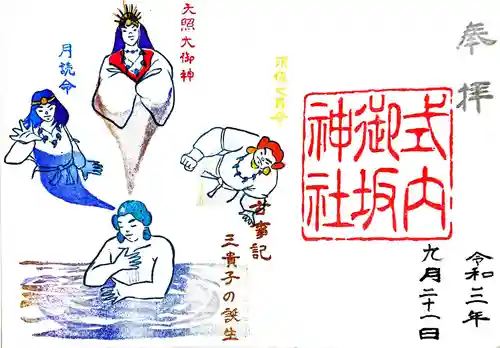 奉拝
式内
御坂
神社
令和三年
九月二十一日
須佐之男命
天照大御神
月読命
古事記
三貴子の誕生